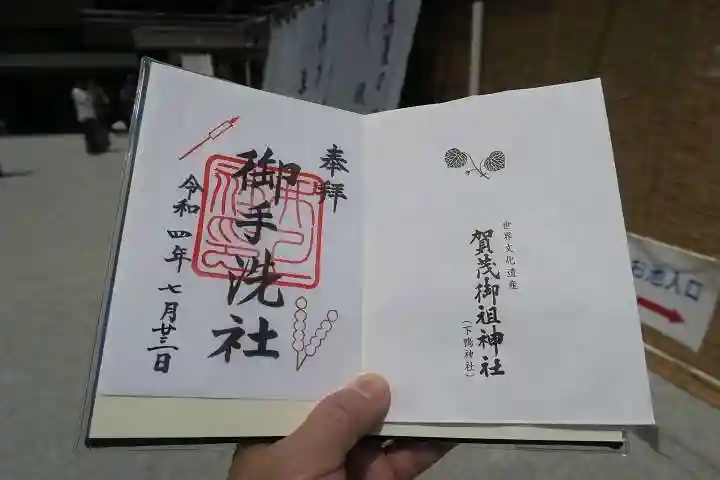 奉拝
御手洗社
令和四年七月廿三日
世界文化遺産
賀茂御祖神社
(下鴨神社)
お池入口